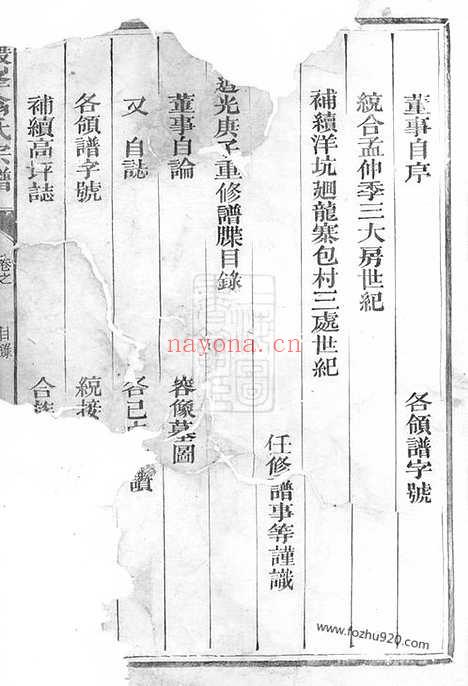 董事自序
各領譜字號
統合孟仲季三大房世紀
補續洋坑廻龍寨包村三處世紀
任修譜事等謹識
道光庚子重修譜牒目錄
董事自論
容像墓圖
又 自誌
各己
讚
各領譜字號
統接
補續高坪誌
合族
氏宗譜
卷之
目錄
nayona.cn
www.fozhu920.com